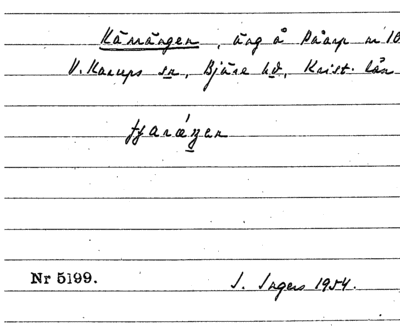 Kärrängen, äng å Påarp nr 10
V. Karups sn, Bjäre hd, Krist. län
Nr 5199.
I. Ingers 1954.